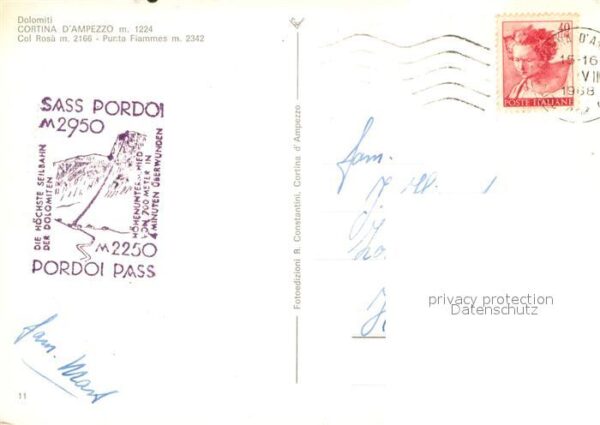 Dolomiti
CORTINA D'AMPEZZO m. 1224
Col Rosà m. 2166 - Punta Fiammes m. 2342
40
POSTE ITALIANE
15-16
1968
SASS PORDOI
M 2950
DIE HÖCHSTE SEILBAHN
DER DOLOMITEN
HÖHENUNTERSCHIED
VON 700 METER IN
4 MINUTEN ÜBERWUNDEN
M 2250
PORDOI PASS
Fotoedizioni R. Constantini, Cortina d'Ampezzo
Fam.
privacy protection
Datenschutz
Fam.
11